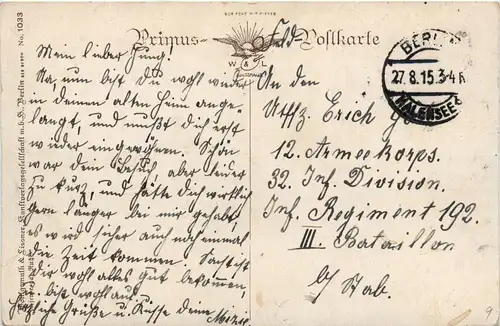 Primus-Postkarte
Feld-
W & L
No. 1033
BERLIN
27.8.15.3-4N
HALENSEE
Mein lieber Jung!
Na, nun bist du wohl wieder
in deinem alten Heim ange-
langt, und mußt dich erst
wieder eingewöhnen. Schön
war dein Besuch, aber leider
zu kurz, und hätte dich wirklich
gern länger bei mir gehabt,
es wird sicher auch noch einmal
die Zeit kommen. Sonst ist
dir wohl alles gut bekommen,
bist wohlauf.
Herzliche Grüße u. Küsse deine
Mizie.
An den
Uffz. Erich
12. Armeekorps.
32. Inf. Division.
Inf. Regiment 192.
III. Bataillon
b/ Stab.